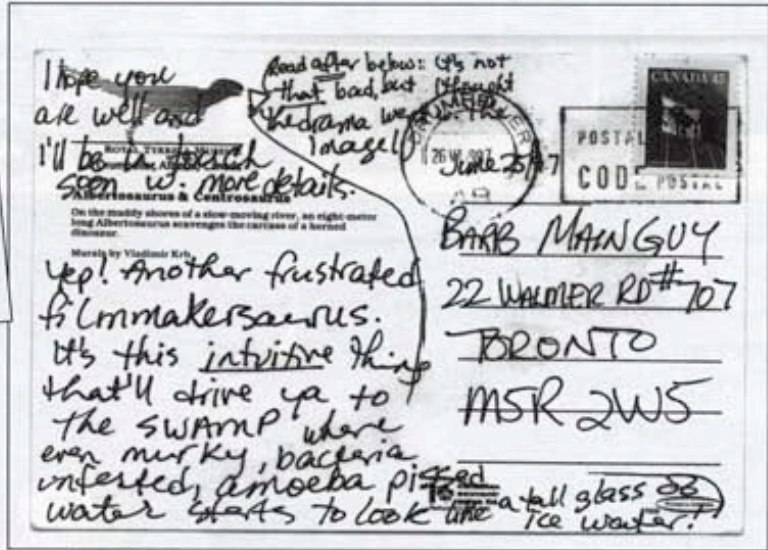 I hope you
are well and
I'll be in touch
soon w. more details.
Read after below: it's not
that bad, but I thought
the drama were in the
image!
ROYAL TYRRELL MUSEUM
Albertosaurus & Centrosaurus
On the muddy shores of a slow-moving river, an eight-meter
long Albertosaurus scavenges the carcass of a horned
dinosaur.
Murals by Vladimir Krb
Yep! Another frustrated
filmmakersaurus.
It's this intuitive thing
that'll drive ya to
the SWAMP where
even murky, bacteria
infested, amoeba pissed
water starts to look like a tall glass of
ice water!!
CANADA 45
DRUMHELLER
POSTAL
CODE POSTAL
June 25/97
BARB MAINGUY
22 WALMER RD #707
TORONTO
M5R 2W5